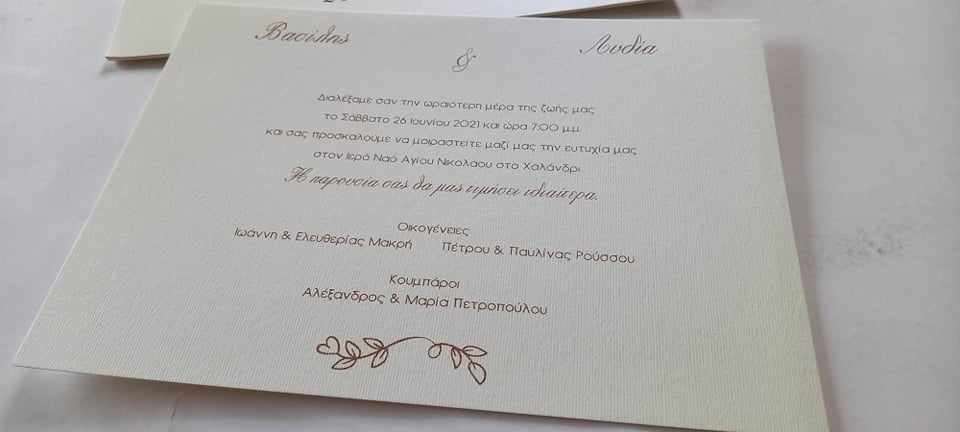 Βασίλης & Λυδία
Διαλέξαμε σαν την ωραιότερη μέρα της ζωής μας
το Σάββατο 26 Ιουνίου 2021 και ώρα 7:00 μ.μ.
και σας προσκαλούμε να μοιραστείτε μαζί μας την ευτυχία μας
στον Ιερό Ναό Αγίου Νικολάου στο Χαλάνδρι
Η παρουσία σας θα μας τιμήσει ιδιαίτερα.
Οικογένειες
Ιωάννη & Ελευθερίας Μακρή Πέτρου & Παυλίνας Ρούσσου
Κουμπάροι
Αλέξανδρος & Μαρία Πετροπούλου